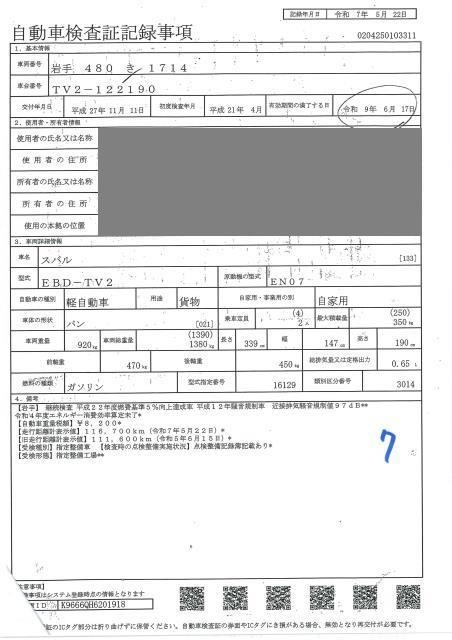 記録年月日 令和 7年 5月 22日
自動車検査証記録事項
0204250103311
1.基本情報
車両番号 岩手 480 き 1714
車台番号 TV2-122190
交付年月日 平成27年 11月 11日 初度検査年月 平成21年 4月 有効期間の満了する日 令和 9年 6月 17日
2.使用者・所有者情報
使用者の氏名又は名称
使用者の住所
所有者の氏名又は名称
所有者の住所
使用の本拠の位置
3.車両詳細情報
車名 スバル [133]
型式 EBD-TV2 原動機の型式 EN07
自動車の種別 軽自動車 用途 貨物 自家用・事業用の別 自家用
車体の形状 バン [021] 乗車定員 (4) 2人 最大積載量 (250) 350kg
車両重量 920kg 車両総重量 (1390) 1380kg 長さ 339cm 幅 147cm 高さ 190cm
前軸重 470kg 後軸重 450kg 総排気量又は定格出力 0.65 l
燃料の種類 ガソリン 型式指定番号 16129 類別区分番号 3014
4.備考
【岩手】 継続検査 平成22年度燃費基準5%向上達成車 平成12年騒音規制車 近接排気騒音規制値97dB**
令和4年度エネルギー消費効率算定未了*
【自動車重量税額】¥8,200*
【走行距離計表示値】116,700km(令和7年5月22日)*
【旧走行距離計表示値】111,600km(令和5年6月15日)*
【受検種別】指定整備車 【検査時の点検整備実施状況】点検整備記録簿記載あり*
【受検形態】指定整備工場**
7
注意事項】
事項はシステム登録時点の情報となります
ID K9666QH6201918
証のICタグ部分は折り曲げずに保管ください。自動車検査証の券面やICタグにき損がある場合、無効となり再交付が必要です。